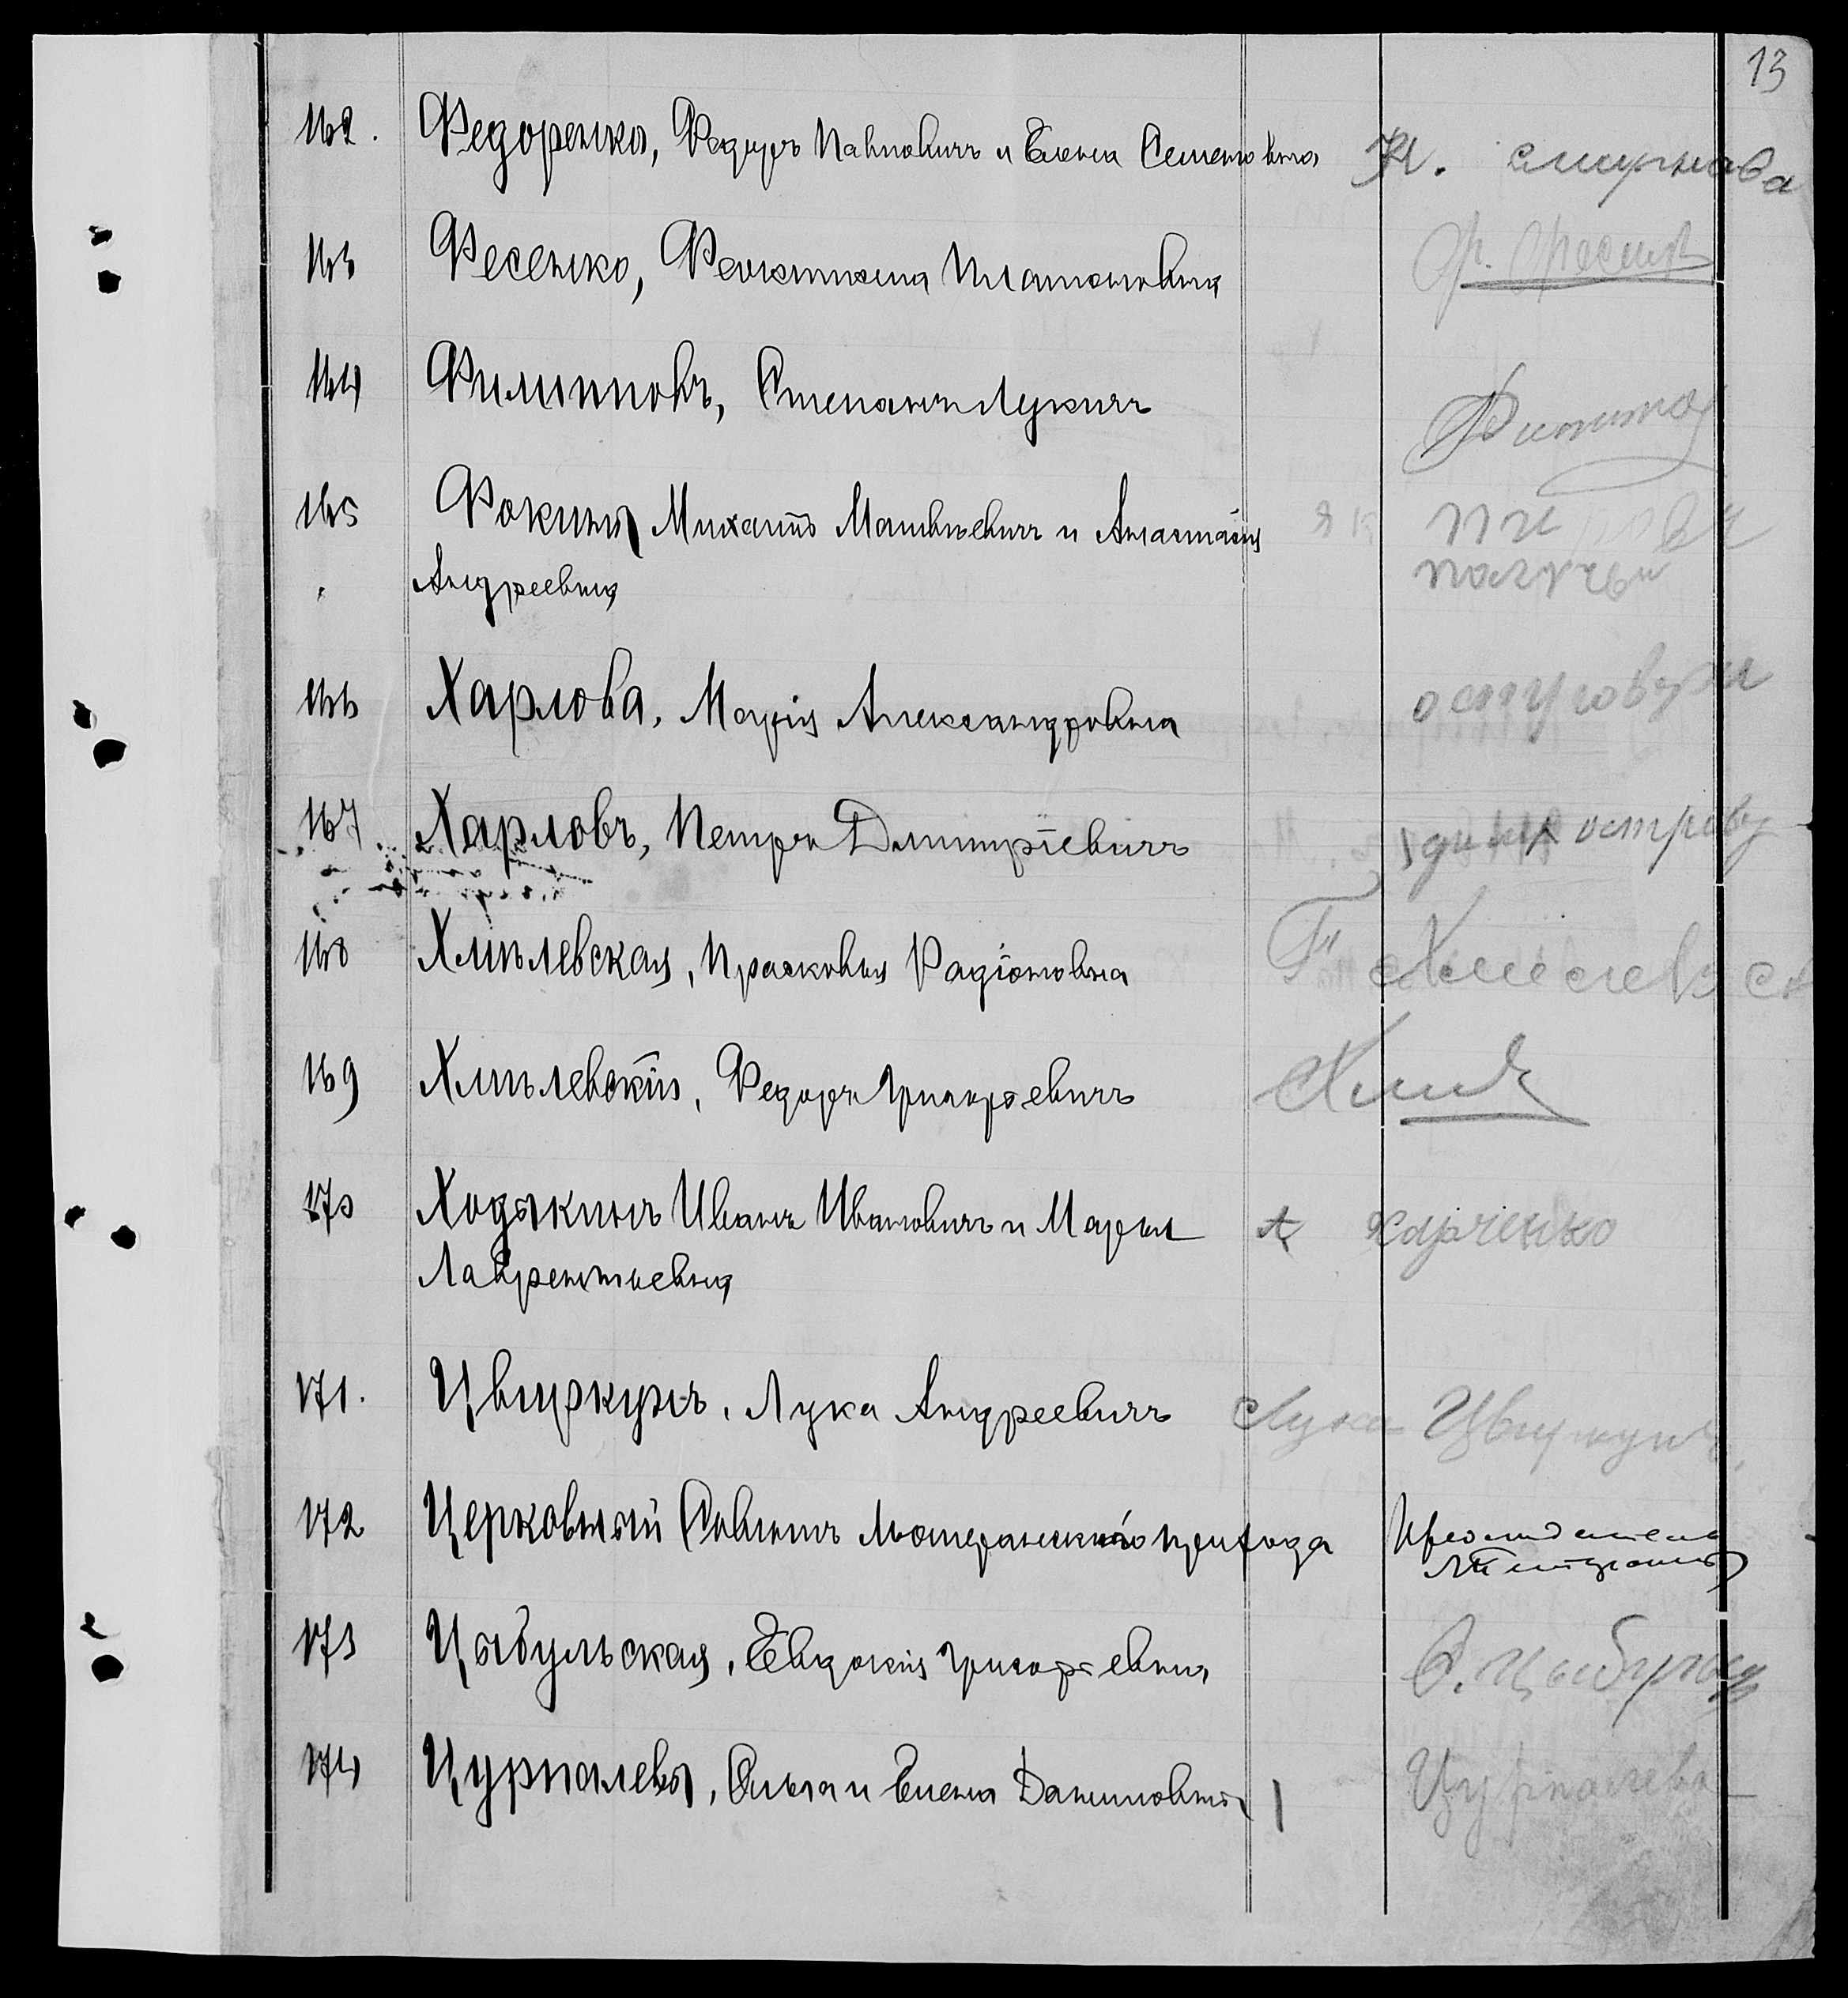 13
162. Федоренко, Федоръ Павловичъ и Елена Семеновна К. Смирнова
163 Фесенко, Феоктиста Платоновна Ф. Фесенк
164 Филипповъ, Степанъ Лукичъ
165 Фокины Михаилъ Матвѣевичъ и Анастасія
Андреевна
166 Харлова, Марія Александровна
167 Харловъ, Петръ Дмитріевичъ острову
168 Хмѣлевская, Прасковья Радіоновна Хмелевск
169 Хмѣлевскій, Федоръ Григорьевичъ
170 Ходыкинъ Иванъ Ивановичъ и Марья Харченко
Лаврентьевна
171. Цвиркунъ, Лука Андреевичъ Лука Цвиркунъ
172 Церковный Совѣтъ Лютеранскаго прихода Председатель
173 Цыбульская, Евдокія Григорьевна
174 Цурпалевы, Ольга и Елена Даниловны Цурпалева